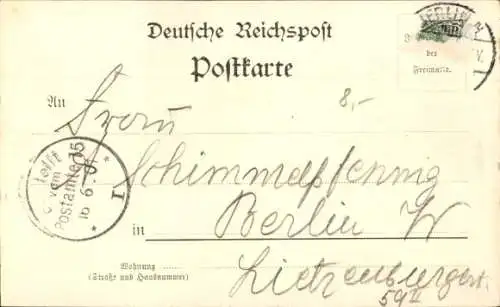 BERLIN
Deutsche Reichspost
Postkarte
der
Freimarke.
An
8,-
Frau
Schimmelpfennig
Berlin W
in
Wohnung
(Straße und Hausnummer)
Lietzenburgerst.
59 II
vom
Postamte 15
16 6 01
I